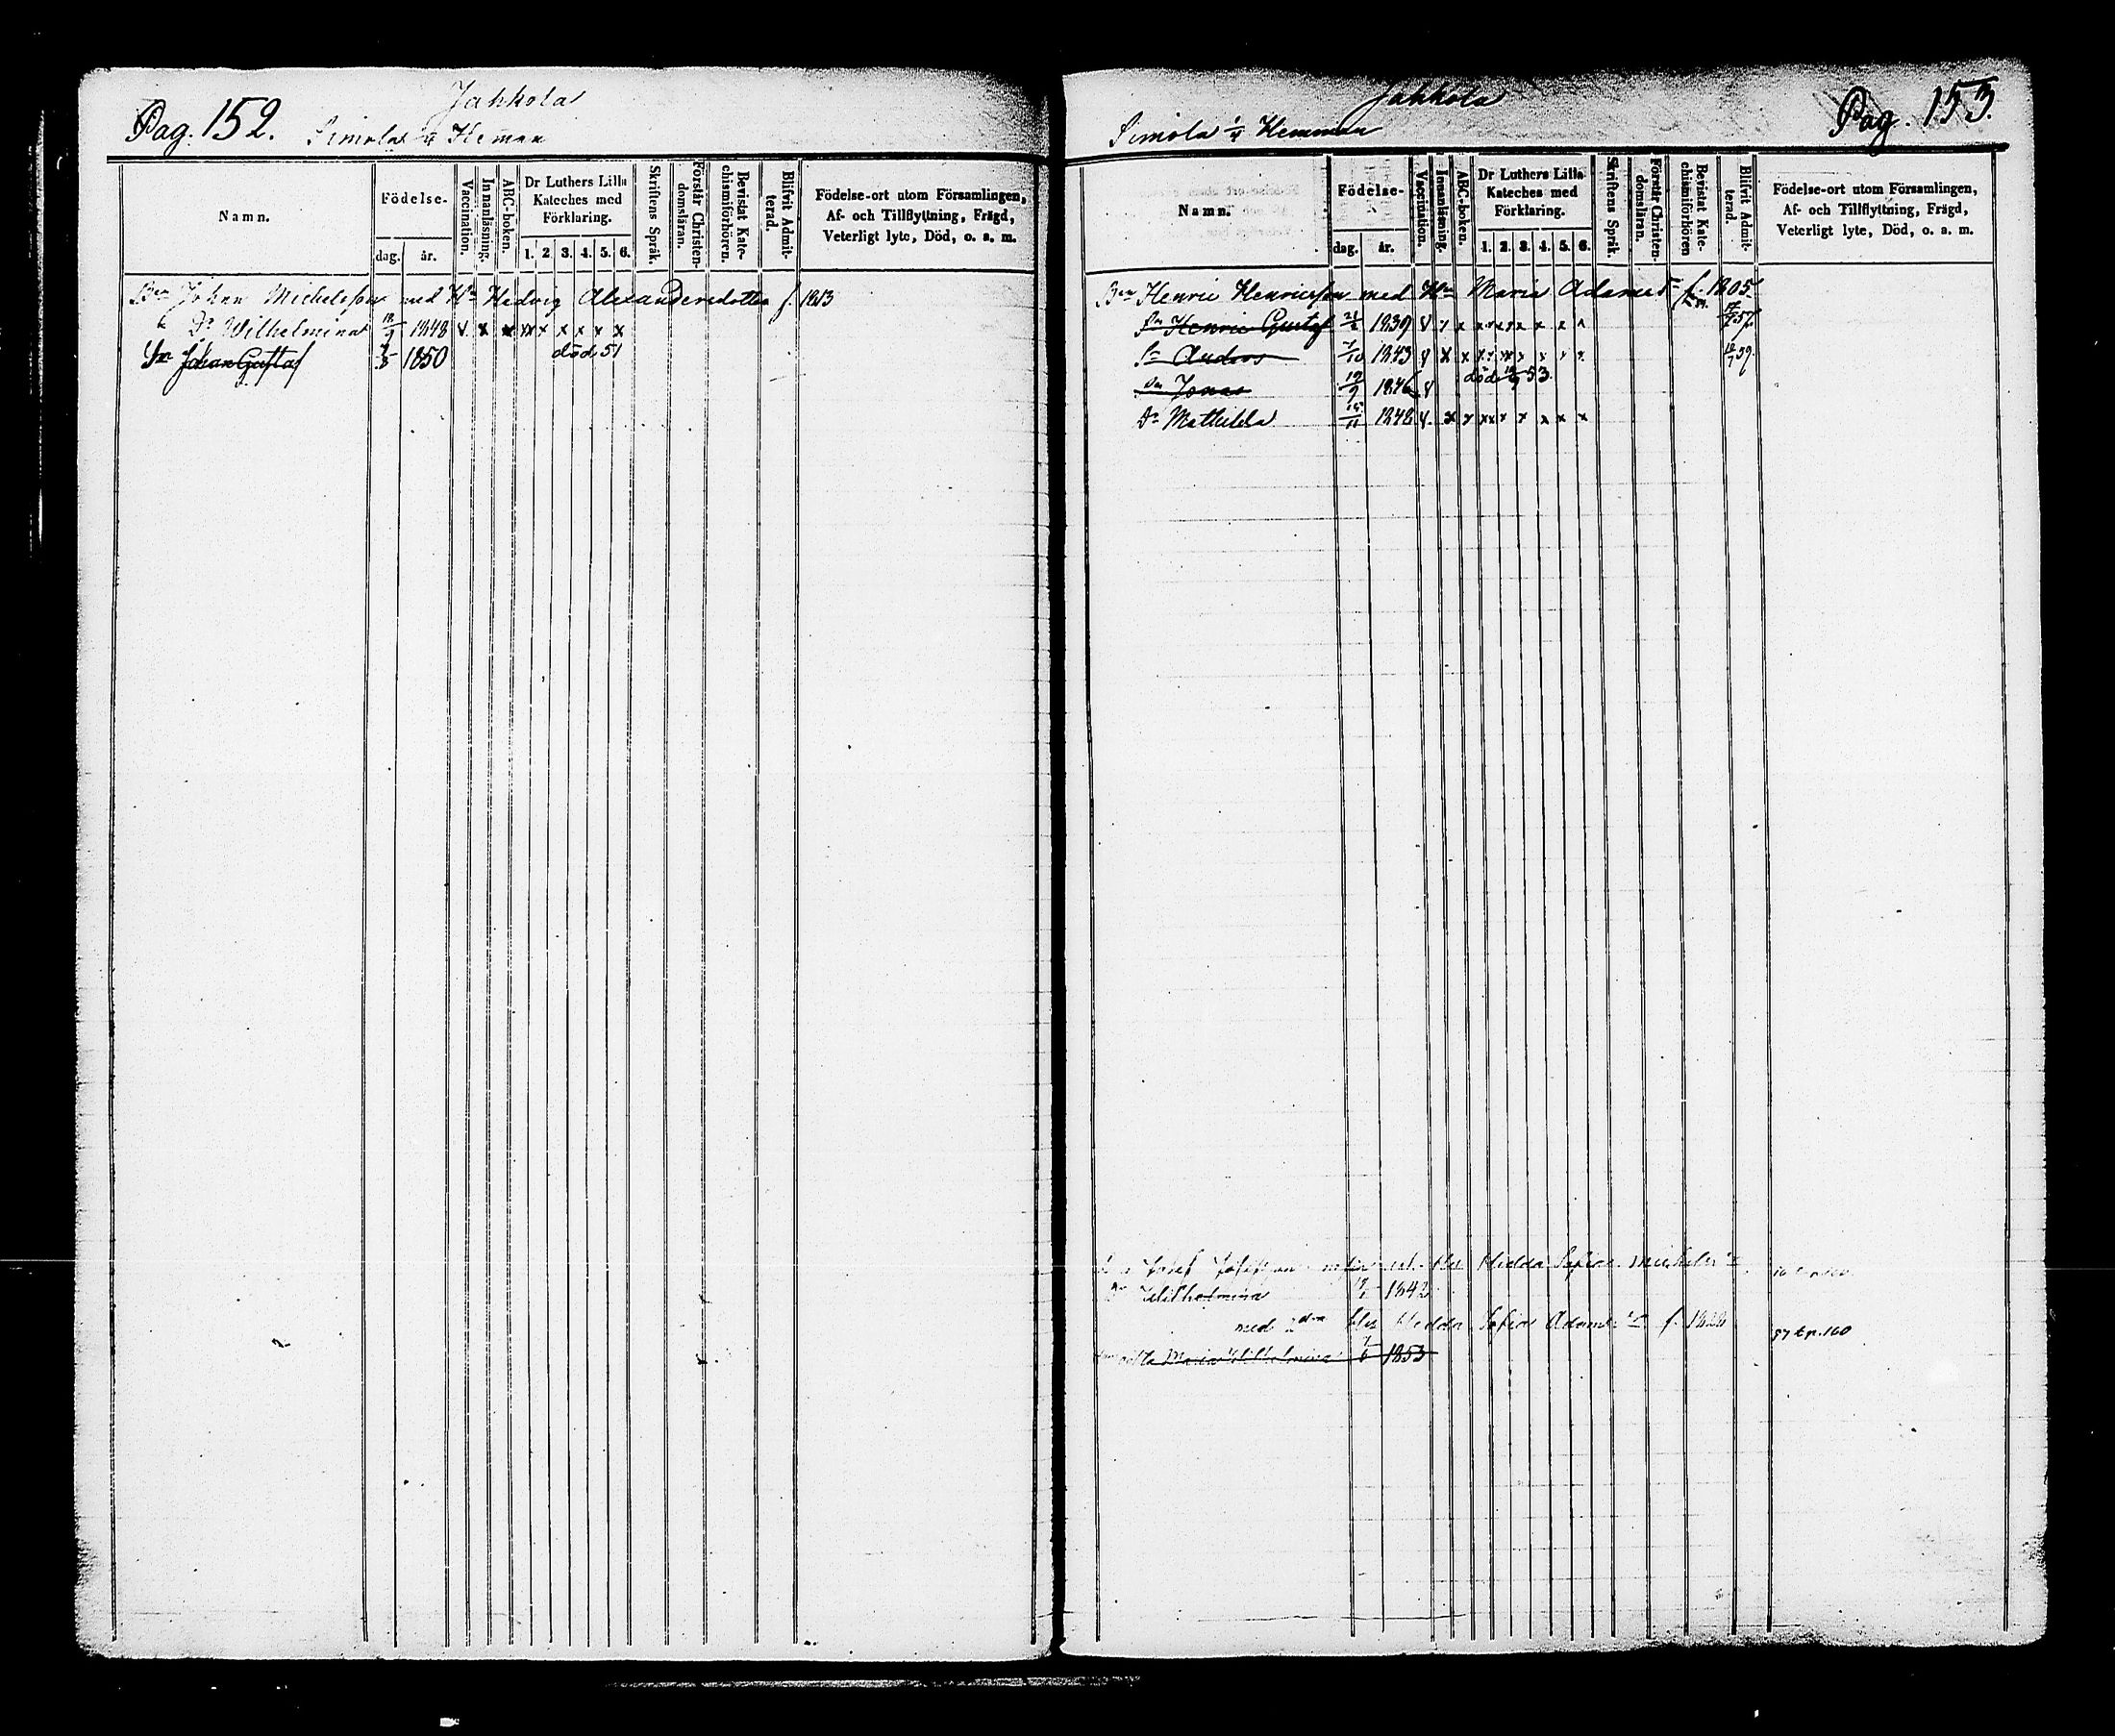 Pag. 152.
Jahkola
Simola 1/4 Heman
Namn.
Födelse-
dag.
år.
Vaccination.
Innanläsning.
ABC-boken.
Dr Luthers Lilla
Kateches med
Förklaring.
1. 2 3. 4. 5. 6.
Skriftens Språk.
Förstår Christen-
domsläran.
Bevistat Kate-
chismiförhören.
Blifvit Admit-
terad.
Födelse-ort utom Församlingen,
Af- och Tillflyttning, Frägd,
Veterligt lyte, Död, o. s. m.
Bn Johan Michelsson med Hn Hedvig Alexandersdotter f. 1813
Dr Wilhelmina 18/9 1848 v x x xx x x x x x
Sn Johan Gustaf 1850 död 51
Jahkola
Pag. 153.
Simola 1/4 Hemman
Namn.
Födelse-
dag.
år.
Vaccination.
Innanläsning.
ABC-boken.
Dr Luthers Lilla
Kateches med
Förklaring.
1. 2. 3. 4. 5. 6.
Skriftens Språk.
Förstår Christen-
domsläran.
Bevistat Kate-
chismiförhören
Blifvit Admit-
terad.
Födelse-ort utom Församlingen,
Af- och Tillflyttning, Frägd,
Veterligt lyte, Död, o. s. m.
Bn Henric Henricsson med Hn Maria Adams f. 1805
Sn Henric Gustaf 1839 57
Sn Anders 1843 59.
död 53.
Sn Jonas 19/9 1846 v
Dr Mathilda 15/11 1848 v. x x xx x x x x x
Josef Josefsson Hedda Sofia Michels
Dr Wilhelmina 1842
med 2dra Hu Hedda Sofia Adams f. 1828 57 t.p. 160
Maria Wilhelmina 1853